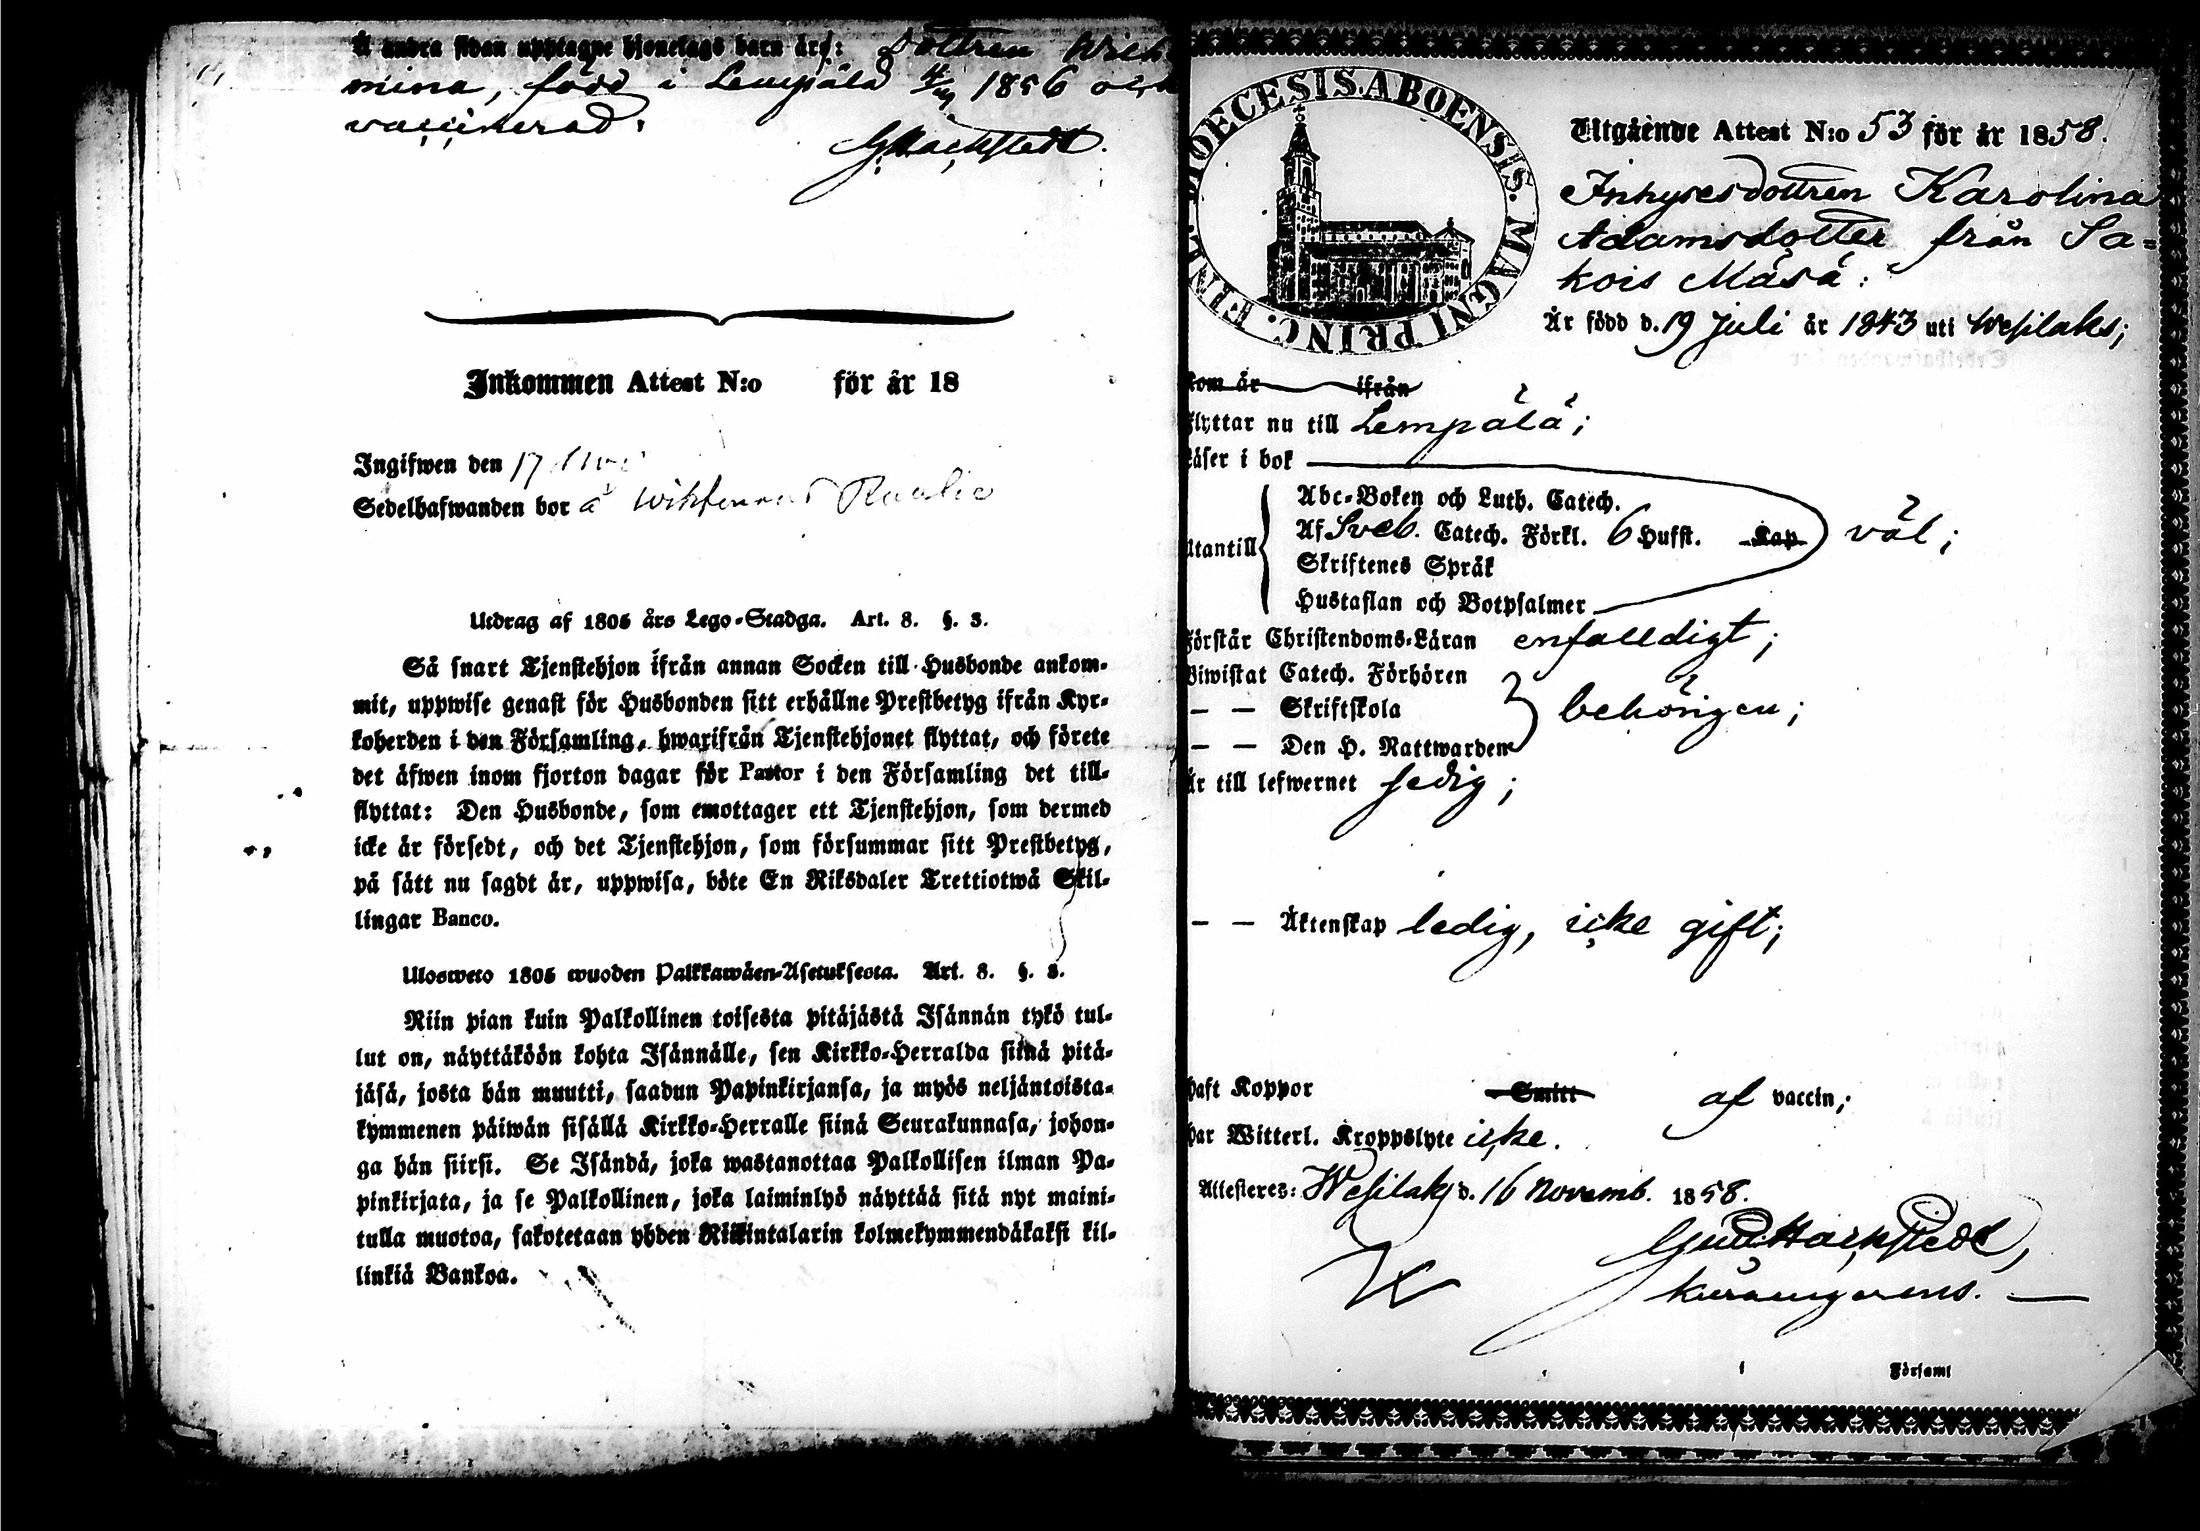 Å andra sidan upptagne hjonelags barn äro: Dottren Wilhel
mina, född i Lempälä 4/4 1856 och
vaccinerad.
G. Hackstedt.
Inkommen Attest N:o för år 18
Ingifwen den 17
Sedelhafwanden bor å
Utdrag af 1805 års Lego-Stadga. Art. 8. §. 3.
Så snart Tjenstehjon ifrån annan Socken till Husbonde ankom-
mit, uppwise genast för Husbonden sitt erhållne Prestbetyg ifrån Kyr-
koherden i den Församling, hwarifrån Tjenstehjonet flyttat, och förete
det äfwen inom fjorton dagar för Pastor i den Församling det till-
flyttat: Den Husbonde, som emottager ett Tjenstehjon, som dermed
icke är försedt, och det Tjenstehjon, som försummar sitt Prestbetyg,
på sätt nu sagdt är, uppwisa, böte En Riksdaler Trettiotwå Skil-
lingar Banco.
Ulosweto 1805 wuoden Palkkawäen-Asetuksesta. Art. 8. §. 3.
Niin pian kuin Palkollinen toisesta pitäjästä Isännän tykö tul-
lut on, näyttäköön kohta Isännälle, sen Kirkko-Herralda siinä pitä-
jäsä, josta hän muutti, saadun Papinkirjansa, ja myös neljäntoista-
kymmenen päiwän sisällä Kirkko-Herralle siinä Seurakunnasa, johon-
ga hän siirsi. Se Isändä, joka wastanottaa Palkollisen ilman Pa-
pinkirjata, ja se Palkollinen, joka laiminlyö näyttää sitä nyt maini-
tulla muotoa, sakotetaan yhden Riikintalarin kolmekymmendäkaksi kil-
linkiä Bankoa.
DIOECESIS ABOENSIS. MAGNI PRINC. FINL.
Utgående Attest N:o 53 för år 1858.
Inhysesdottren Karolina
Adamsdotter från Sa-
kois Mäsä:
Är född d. 19 Juli år 1843 uti Wesilaks;
kom år ifrån
flyttar nu till Lempälä;
Läser i bok
Abc-Boken och Luth. Catech.
Utantill Af Sveb. Catech. Förkl. 6 Hufst. Kap väl;
Skriftenes Språk
Hustaflan och Botpsalmer
Förstår Christendoms-Läran enfalldigt;
Biwistat Catech. Förhören
— — Skriftskola behörigen;
— — Den H. Nattwarden
Är till lefwernet sedig;
— — Äktenskap ledig, icke gift;
haft Koppor Smitt af vaccin;
har Witterl. Kroppslyte icke.
Attesteres: Wesilaks d. 16 Novemb. 1858.
Hackstedt,
Församl